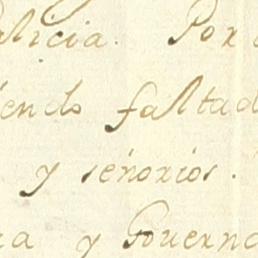 alicia. Por
endo faltad
y señorios.
ra y Governa